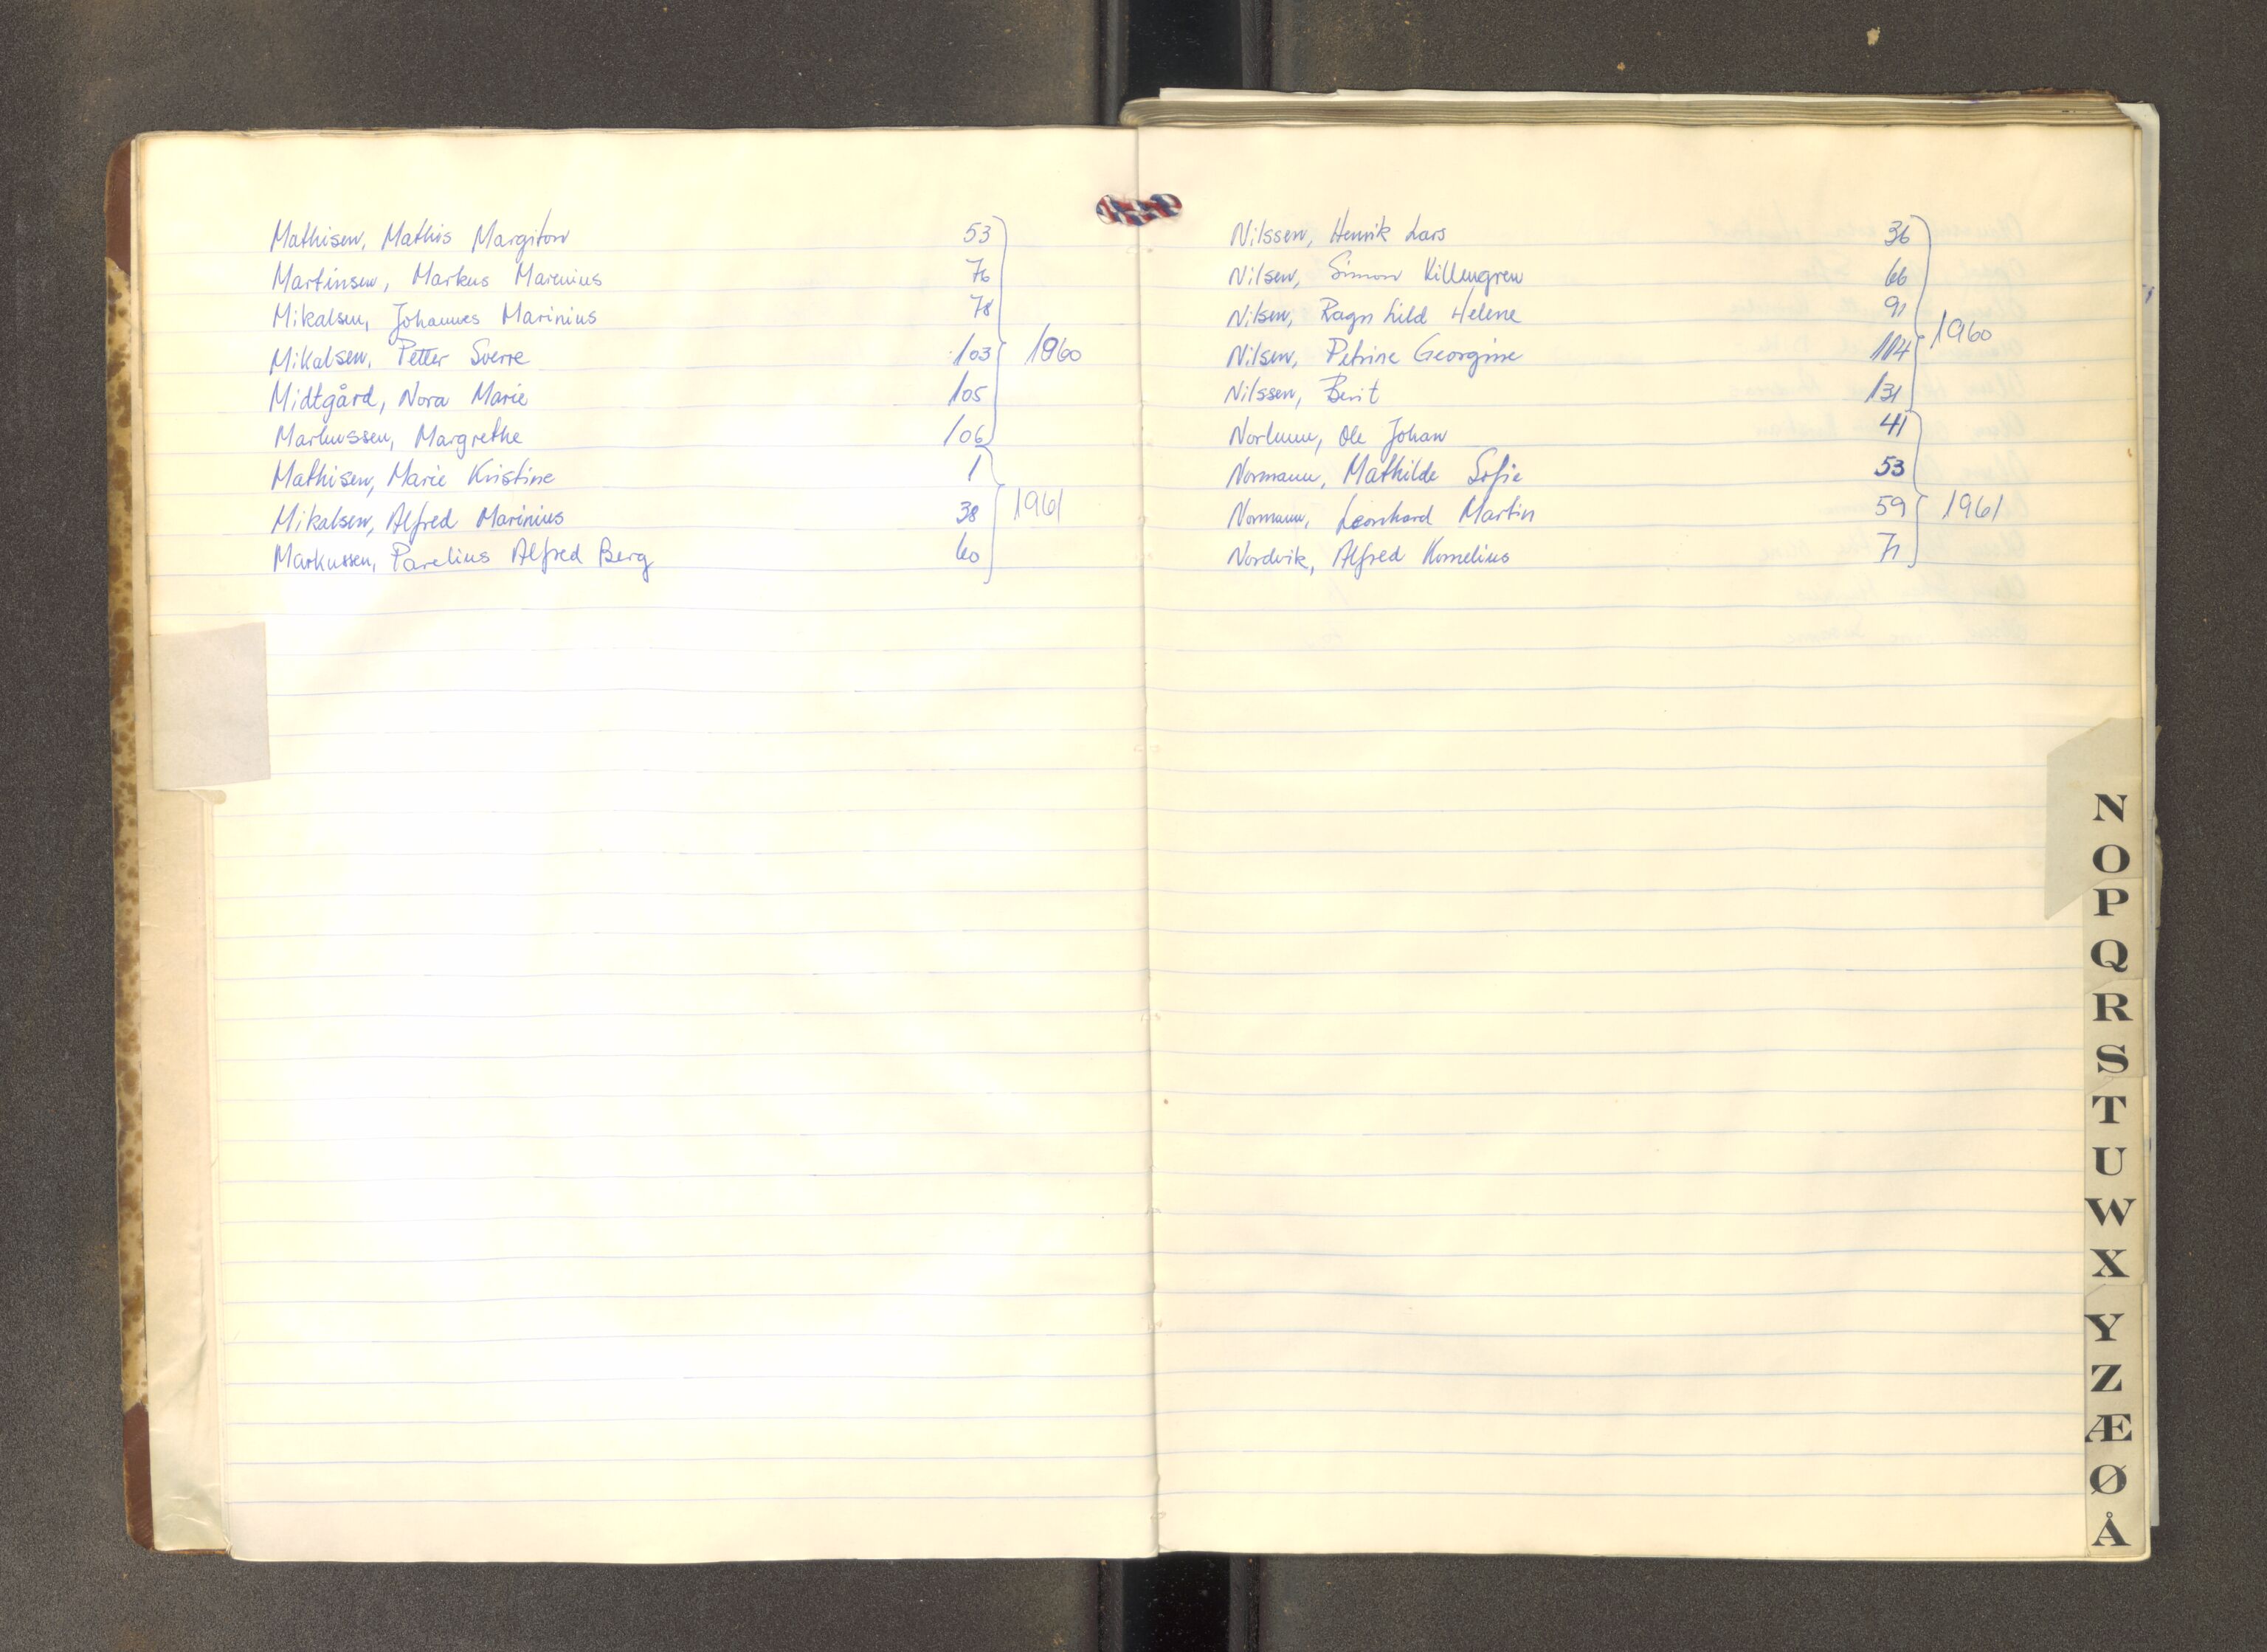 Mathisen, Mathis Margiton 53
Martinsen, Markus Marenius 76
Mikalsen, Johannes Marinius 78
Mikalsen, Petter Sverre 103 1960
Midtgård, Nora Marie 105
Markussen, Margrethe 106
Mathisen, Marie Kristine 1
Mikalsen, Alfred Marinius 38 1961
Markussen, Parelius Alfred Berg 60
Nilssen, Henrik Lars 36
Nilsen, Simon Killengren 66
Nilsen, Ragnhild Helene 91
1960
Nilsen, Petrine Georgine 114
Nilssen, Berit 131
Ole Johan 41
Normann, Mathilde Sofie 53
Normann, Leonhard Martin 59 1961
Nordvik, Alfred Kornelius 71
N
O
P
Q
R
S
T
U
W
X
Y
Z
Æ
Ø
Å